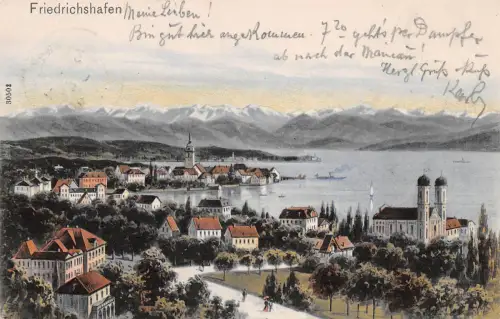 Friedrichshafen
Meine Lieben!
Bin gut hier angekommen. 7 20 geht's per Dampfer
ab nach der
Herzl. Gruß u. Kuß
30502